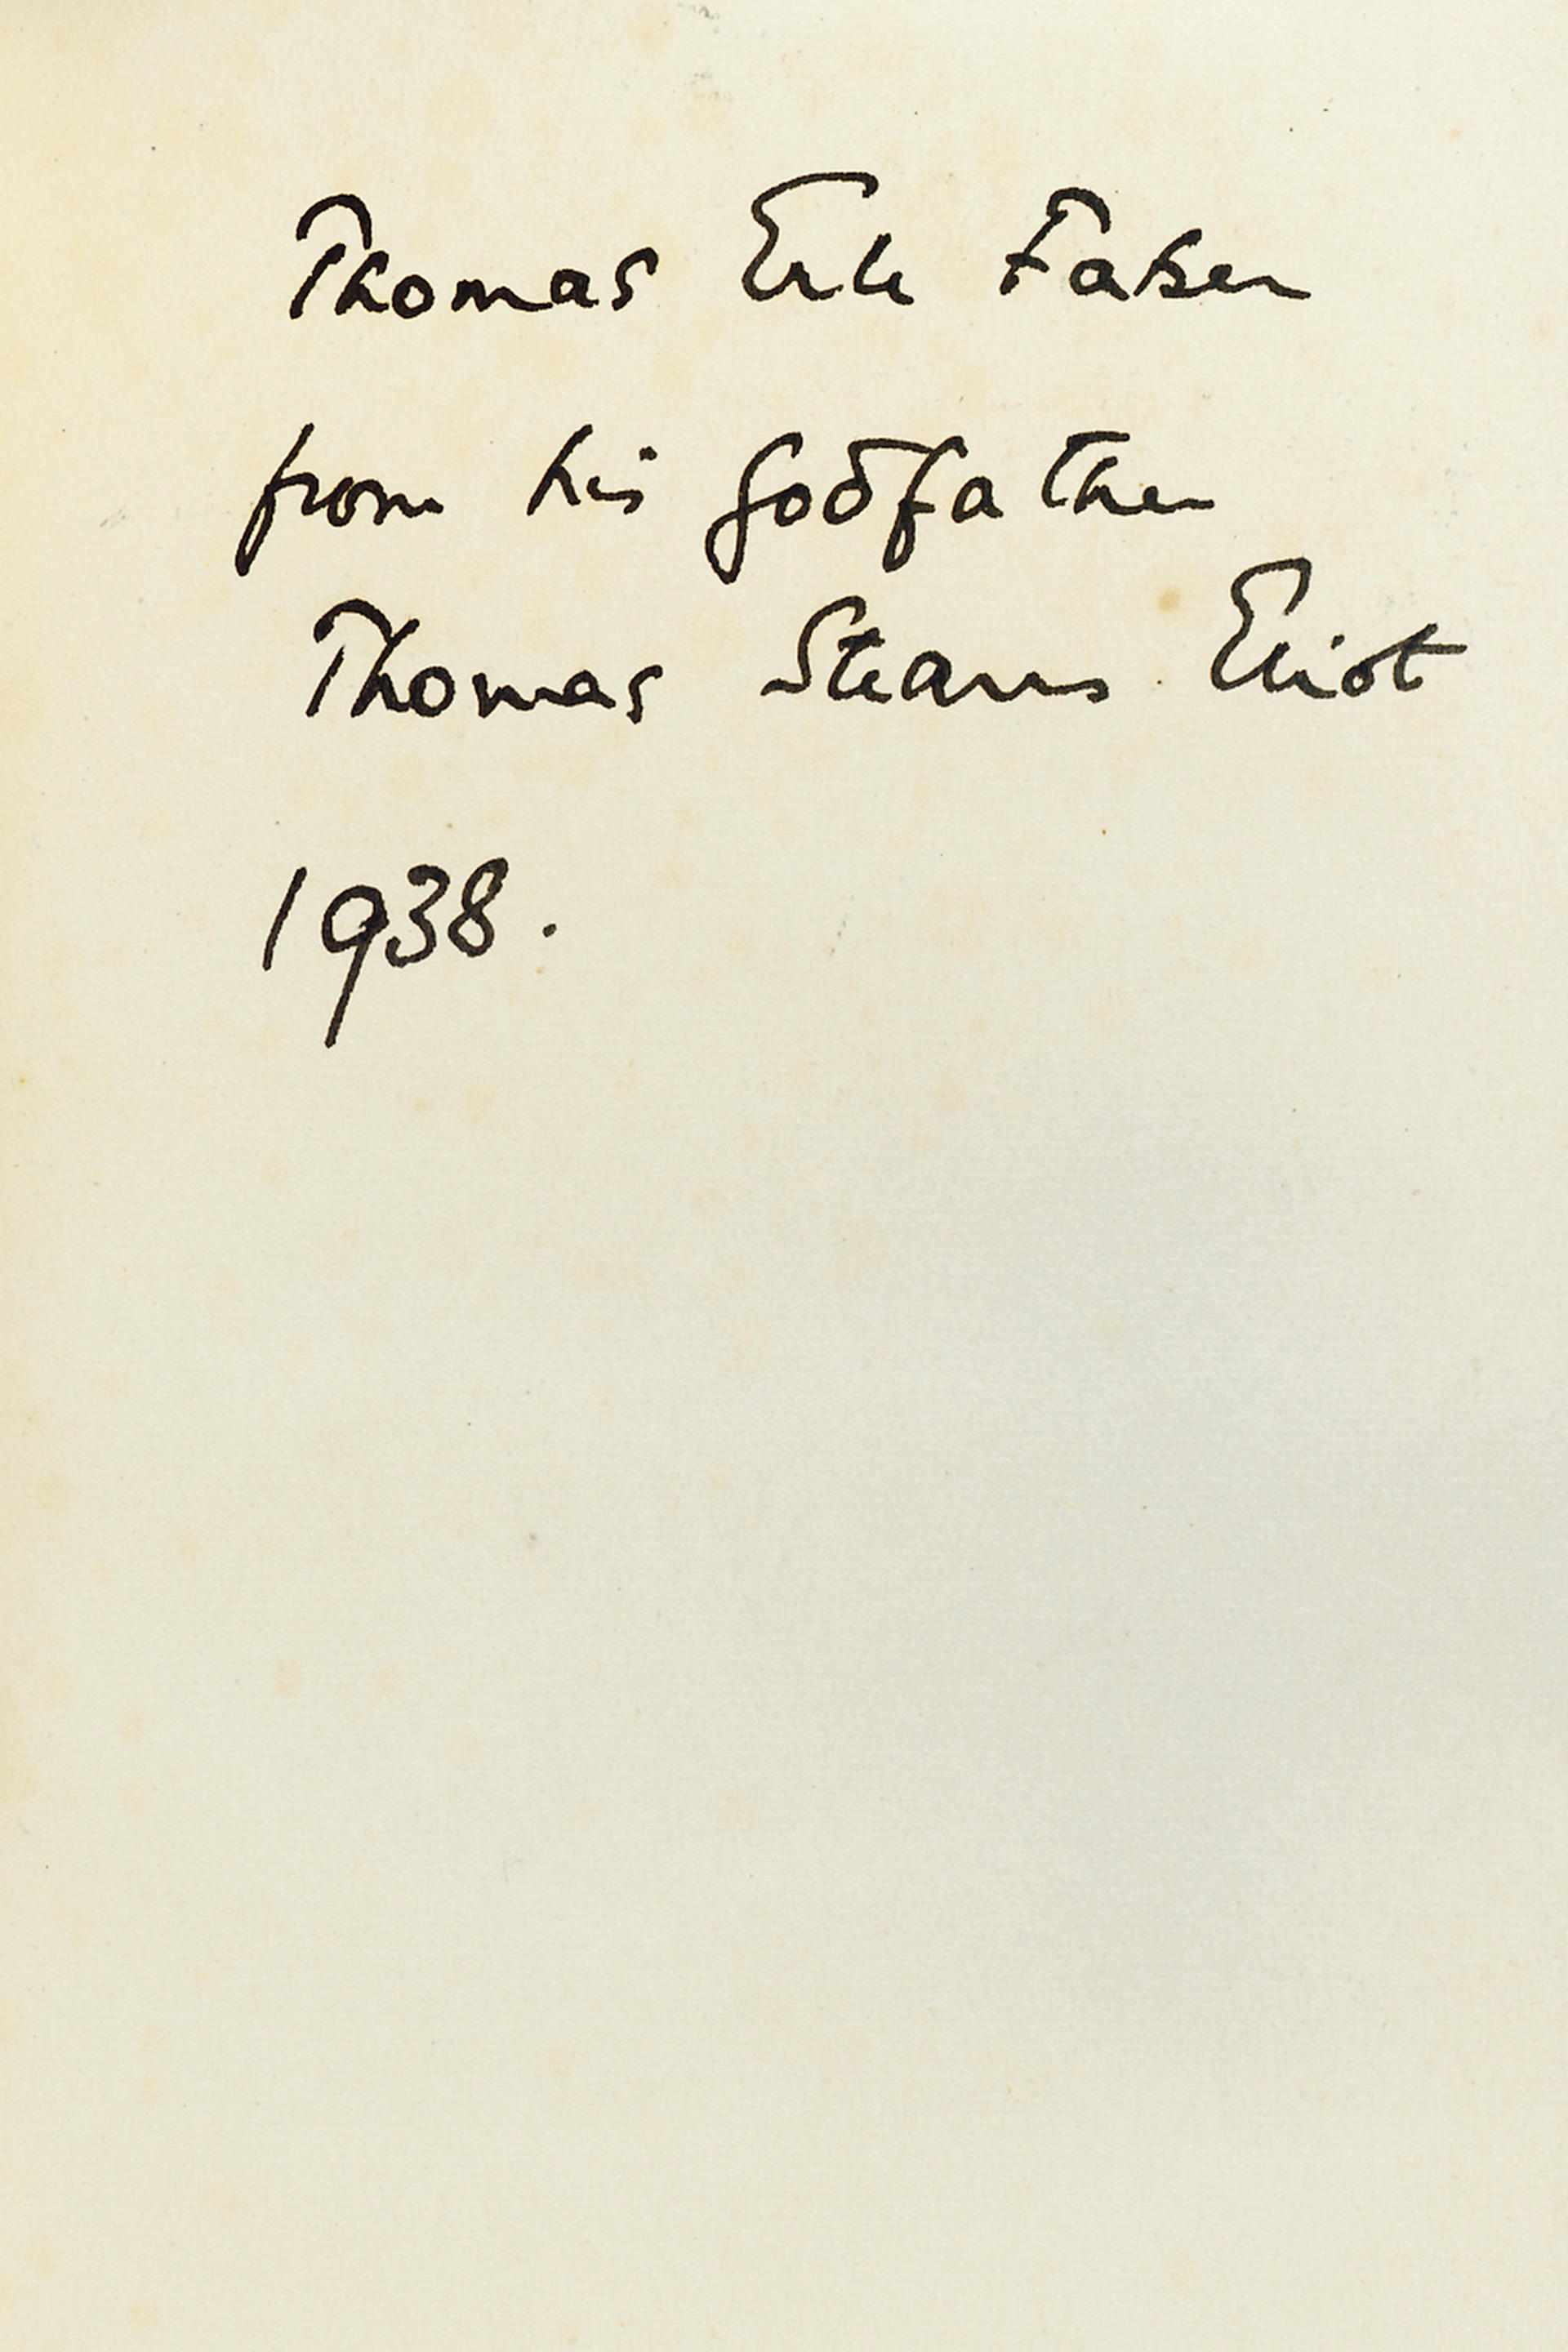 Thomas Erle Faber
from his godfather
Thomas Stearns Eliot
1938.